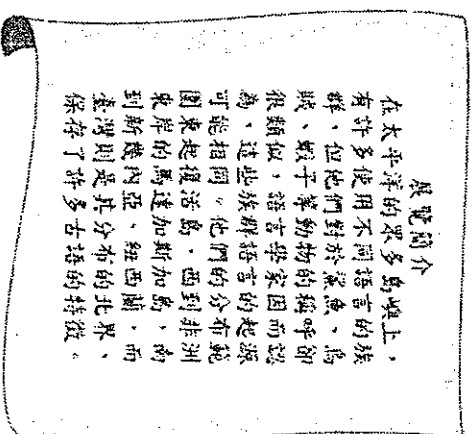 展覽簡介
在太平洋的眾多島嶼上，
有許多使用不同語言的族
群，但他們對於鯊魚、烏
賊、蝦子等動物的稱呼卻
很類似，語言學家因而認
為，這些族群語言的起源
可能相同。他們的分布範
圍東起復活島，西到非洲
東岸的馬達加斯加島，南
到新幾內亞、紐西蘭，而
臺灣則是其分布的北界，
保存了許多古語的特徵。